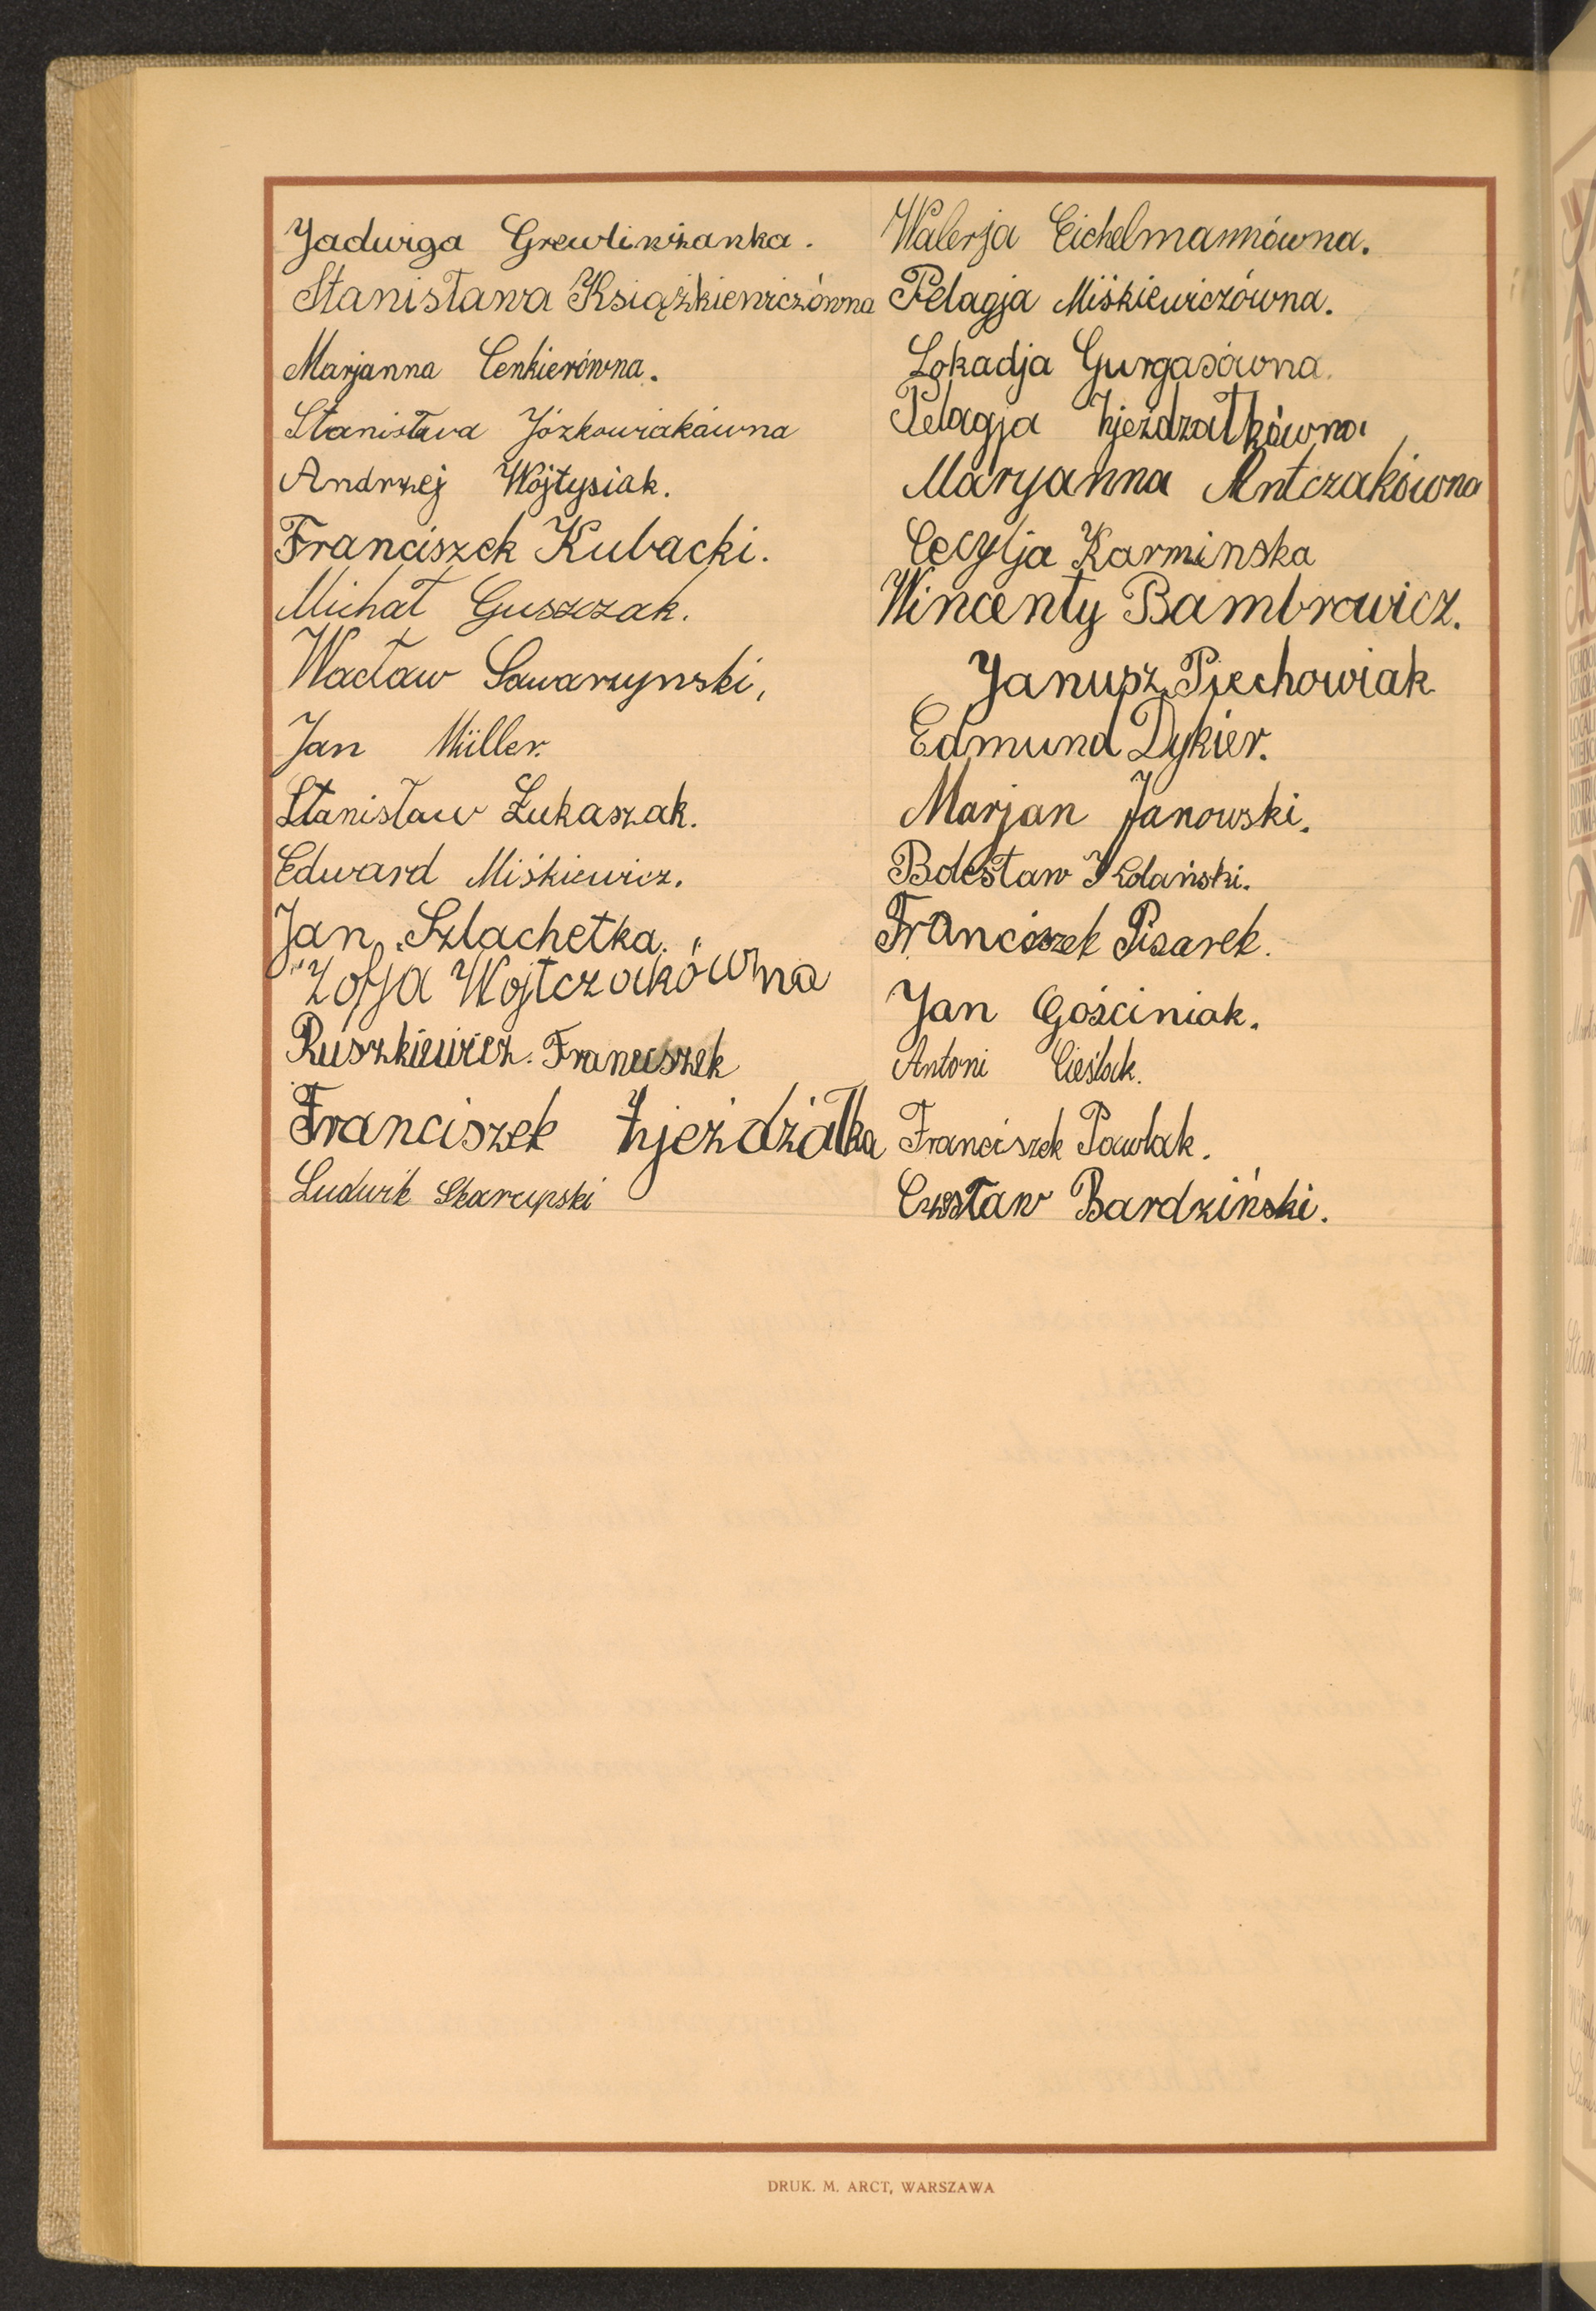 Jadwiga Grewlinżanka.
Stanisława Książkiewiczówna
Marjanna Cenkierówna.
Stanisława Józkowiakówna
Andrzej Wojtysiak.
Franciszek Kubacki.
Michał Guszczak.
Wacław Sawarzynski,
Jan Müller.
Stanisław Łukaszak.
Edward Miśkiewicz.
Jan Szlachetka.
Zofja Wojtczakówna
Ruszkiewicz. Franciszek
Franciszek Zjeżdżałka
Ludwik Skarupski
Walerja Eichelmannówna.
Pelagja Miśkiewiczówna.
Lokadja Gurgasówna.
Pelagja Zjeżdzałkówna
Maryanna Antczakówna
Cecylja Karminska
Wincenty Bambrowicz.
Janusz Piechowiak
Edmund Dykier.
Marjan Janowski.
Bolesław Kolański.
Franciszek Pisarek.
Jan Gościniak.
Antoni Cieślak.
Franciszek Pawlak.
Czesław Bardziński.
DRUK. M. ARCT, WARSZAWA